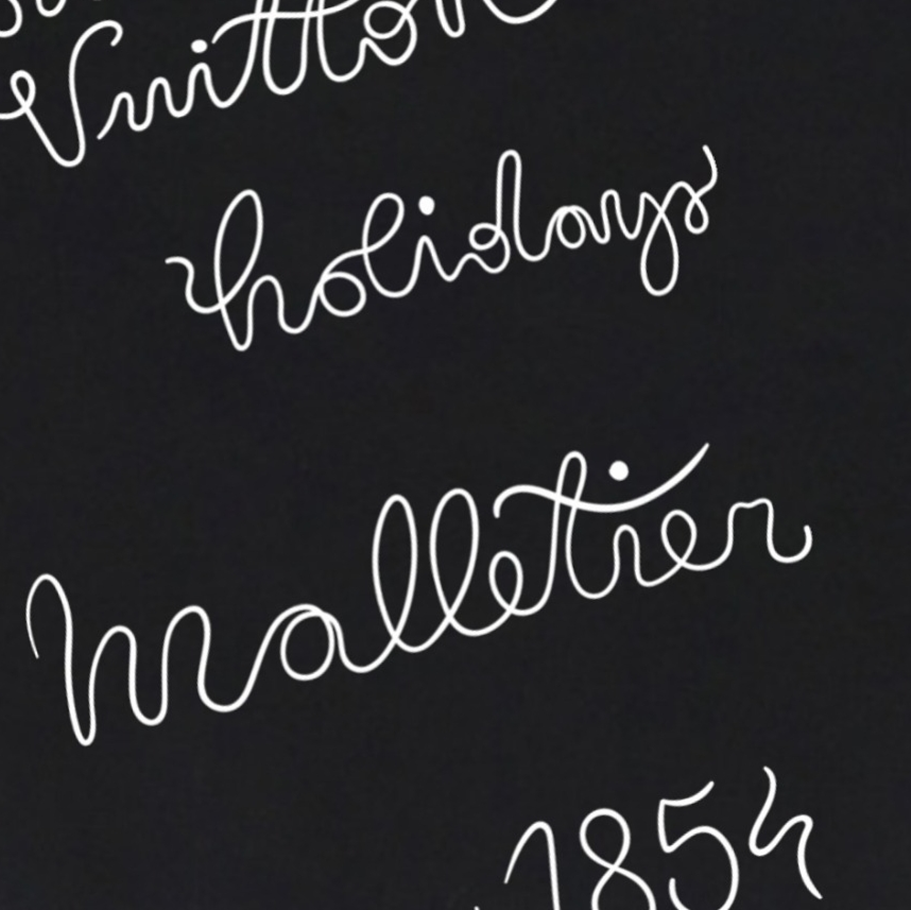 Vuitton
holidays
Malletier
1854